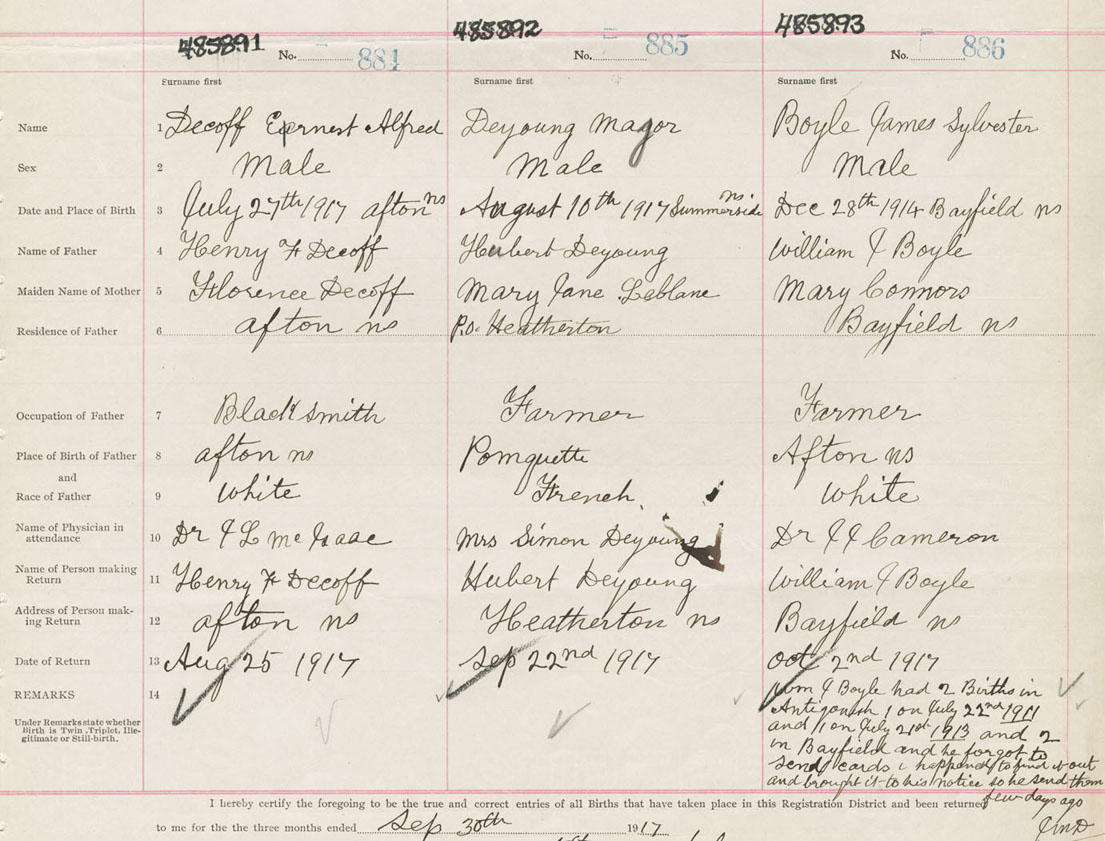 485891 485892 485893
No. 884 No. 885 No. 886
Surname first Surname first Surname first
Name 1 Decoff Epernest Alfred Deyoung Magor Boyle James Sylvester
Sex 2 Male Male Male
Date and Place of Birth 3 July 27th 1917 afton ns August 10th 1917 Summerside ns Dec 28th 1914 Bayfield ns
Name of Father 4 Henry F Decoff Hubert Deyoung William J Boyle
Maiden Name of Mother 5 Florence Decoff Mary Jane Leblanc Mary Connors
Residence of Father 6 afton ns P.O. Heatherton Bayfield ns
Occupation of Father 7 Blacksmith Farmer Farmer
Place of Birth of Father 8 afton ns Pomquette Afton ns
and
Race of Father 9 White French White
Name of Physician in
attendance 10 Dr J L McIsaac Mrs Simon Deyoung Dr J J Cameron
Name of Person making
Return 11 Henry F Decoff Hubert Deyoung William J Boyle
Address of Person mak-
ing Return 12 afton ns Heatherton ns Bayfield ns
Date of Return 13 Aug 25 1917 Sep 22nd 1917 Oct 2nd 1917
REMARKS 14
Under Remarks state whether
Birth is Twin, Triplet, Ille-
gitimate or Still-birth.
Wm J Boyle had 2 Births in
Antigonish 1 on July 22nd 1911
and 1 on July 21st 1913 and 2
in Bayfield and he forgot to
send cards i happened to find it out
and brought it to his notice so he send them
few days ago
JMD
I hereby certify the foregoing to be the true and correct entries of all Births that have taken place in this Registration District and been returned
to me for the the three months ended Sep 30th 1917